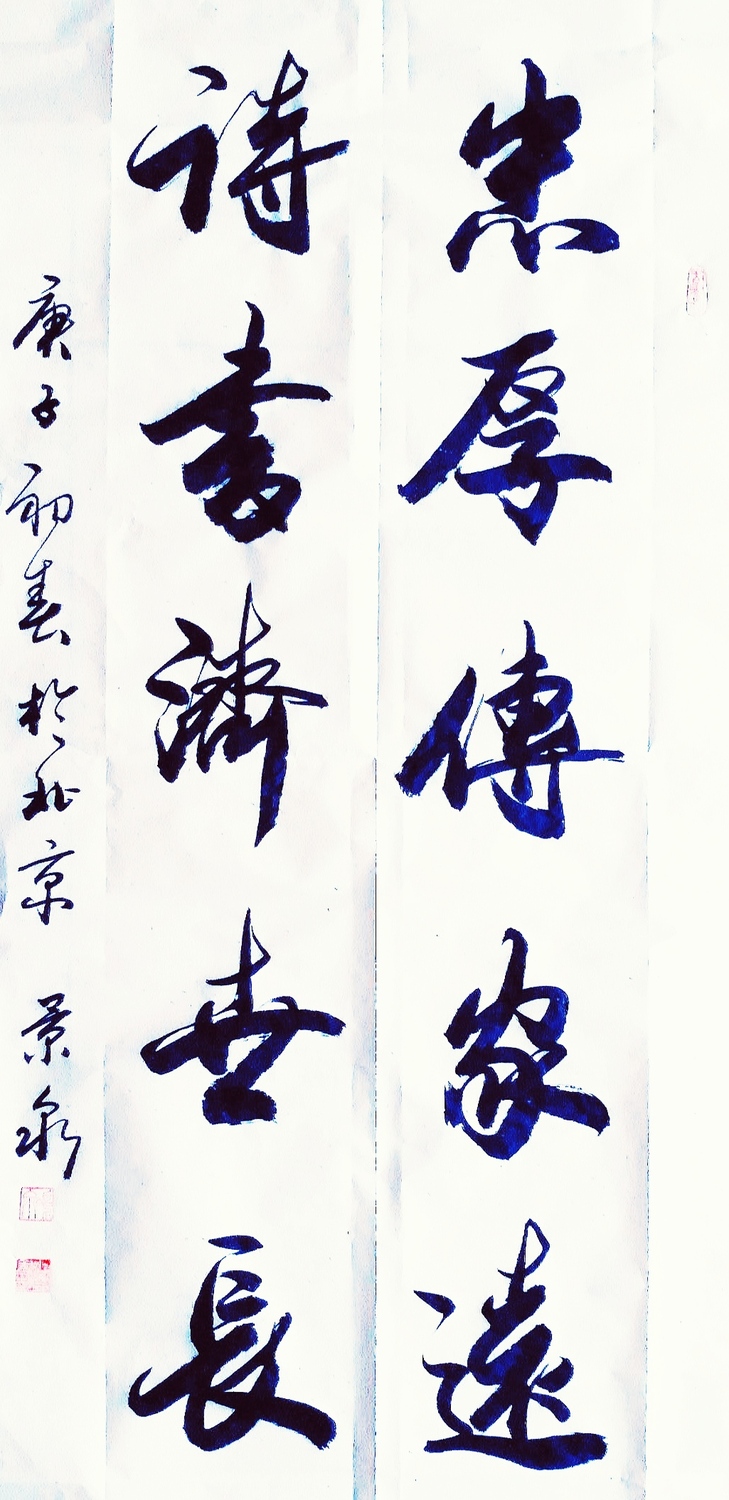 忠厚傳家遠
詩書濟世長
庚子初春於北京 景泉